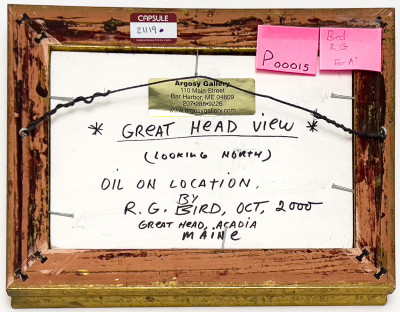 CAPSULE
21119
P00015
Bird
R.G
For A
Argosy Gallery
110 Main Street
Bar Harbor, ME 04609
207-288-9226
www.argosygallery.com
* GREAT HEAD VIEW *
(LOOKING NORTH)
OIL ON LOCATION.
BY
R. G. BIRD, OCT, 2000
GREAT HEAD, ACADIA
MAINE